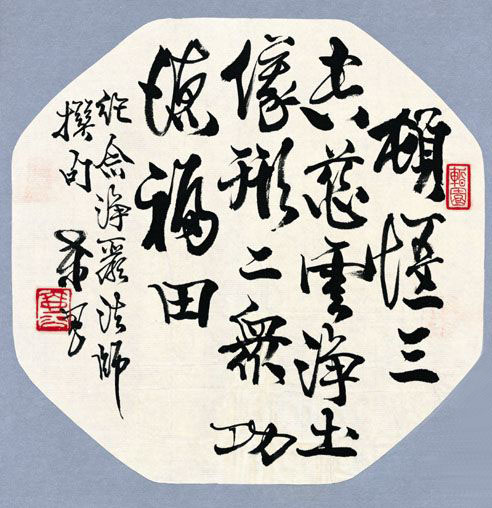 頓三
空慈雲淨土
儀形二衆功
德福田
紀念淨嚴法師
撰句